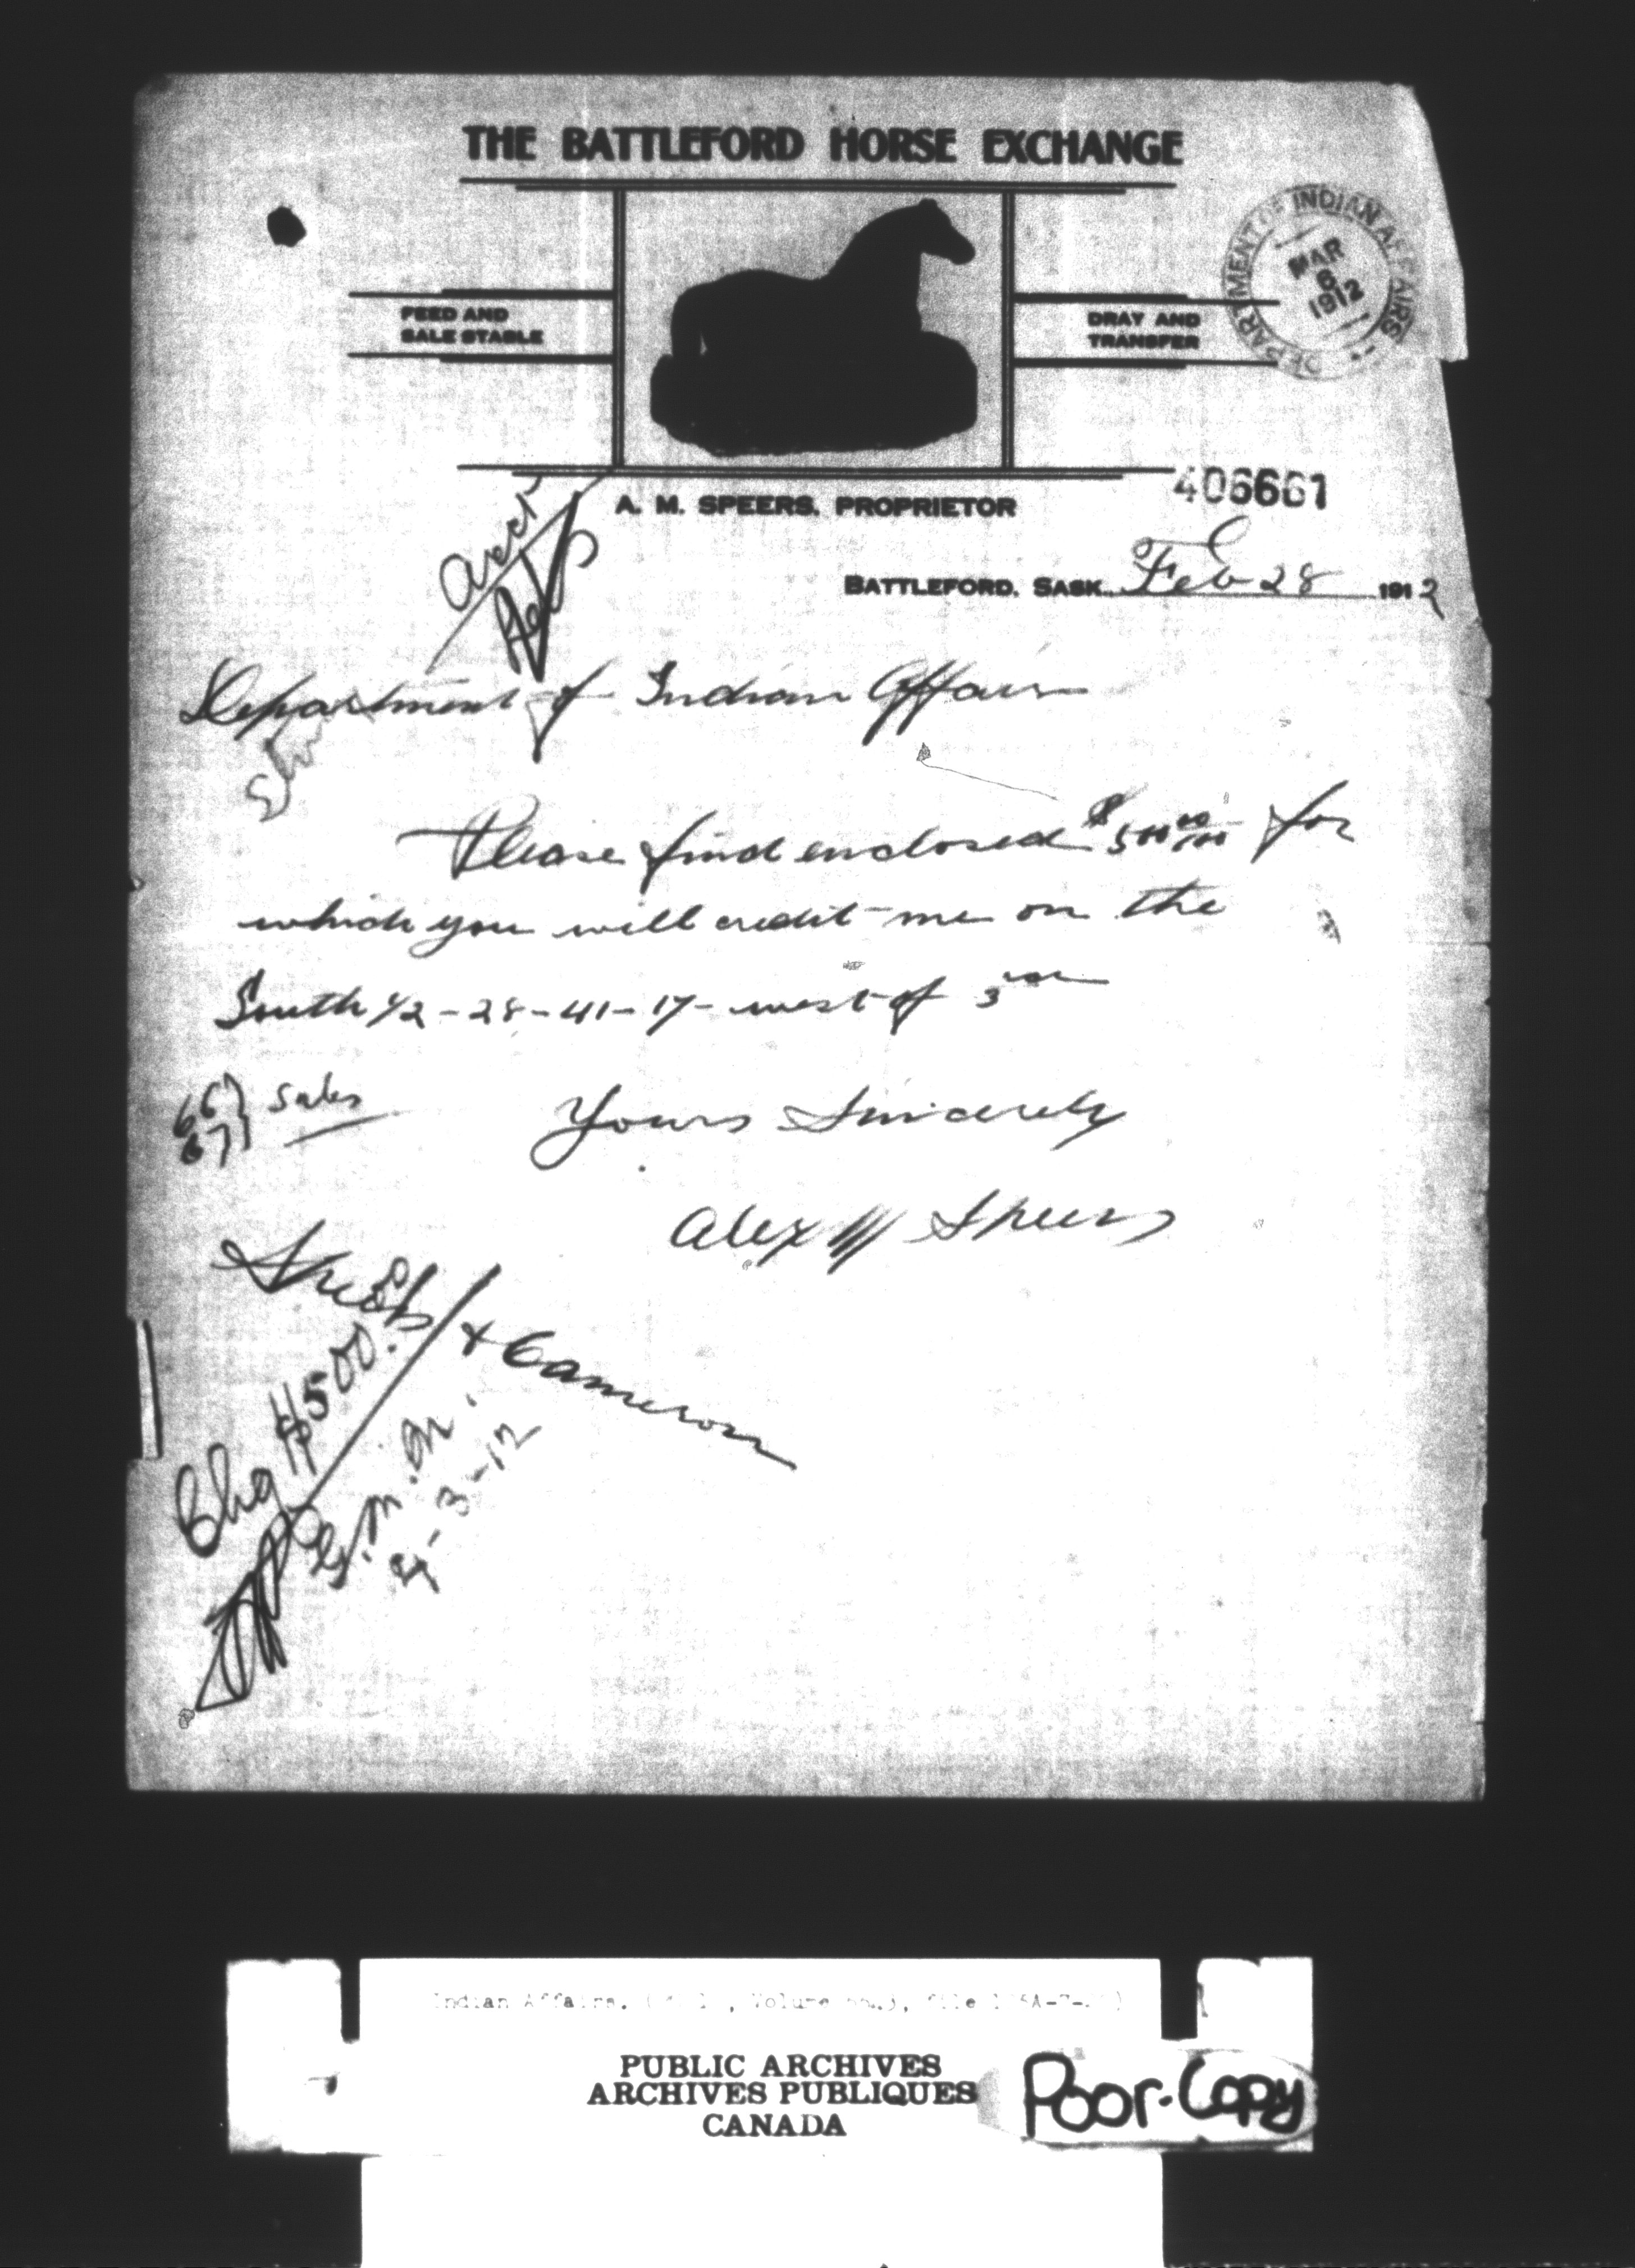 THE BATTLEFORD HORSE EXCHANGE
FEED AND
SALE STABLE
DRAY AND
TRANSFER
DEPARTMENT OF INDIAN AFFAIRS
MAR
6
1912
A. M. SPEERS. PROPRIETOR
406661
BATTLEFORD. SASK. Feb 28 1912
Department of Indian Affairs
Please find enclosed $500 00/100 for
which you will credit me on the
South 1/2 - 28 - 41 - 17 - west of 3rd
66 } Sales
67 }
Yours Sincerely
Alex M Speers
+ Cameron
Chq $500.00
G.M.M.
3-12
Indian Affairs.
PUBLIC ARCHIVES
ARCHIVES PUBLIQUES
CANADA
Poor-Copy